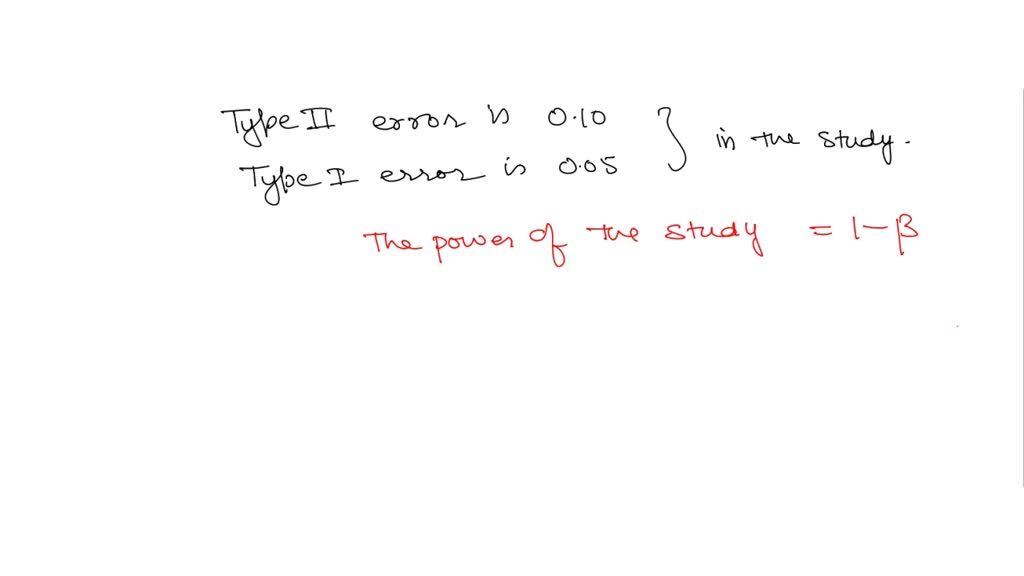 Type II error is 0.10
Type I error is 0.05 } in the study.
The power of the study = 1-β